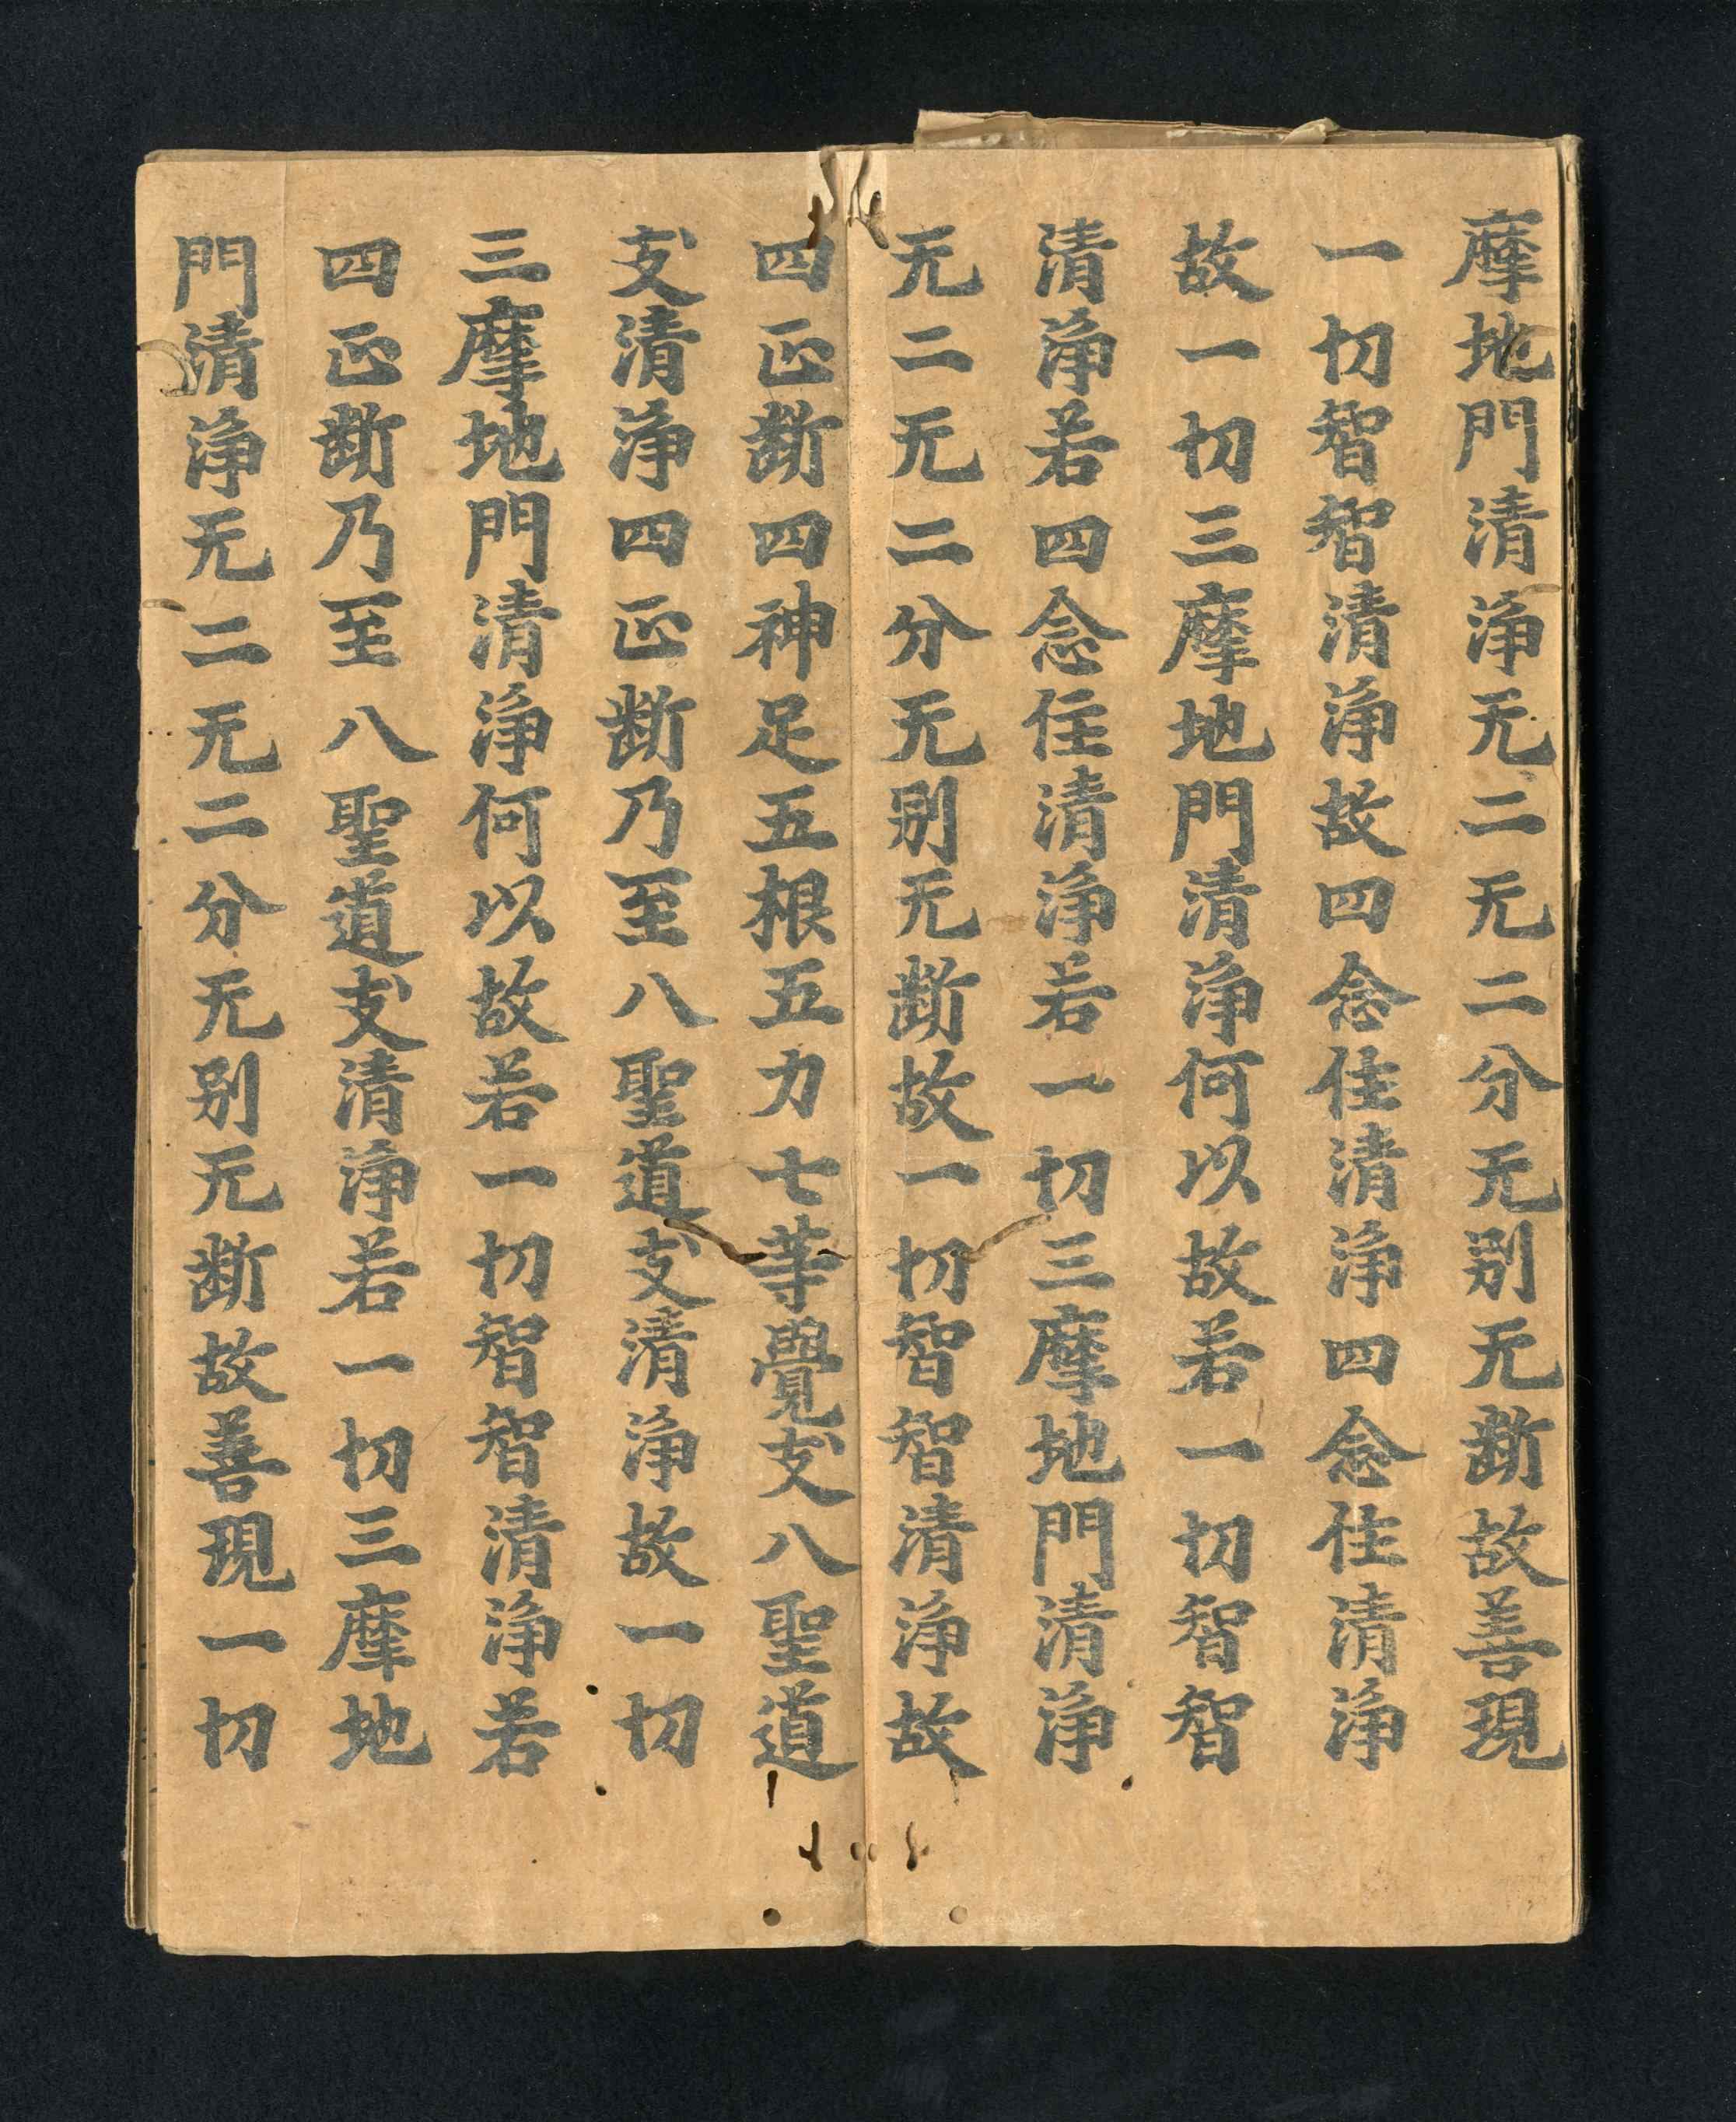 摩地門清淨无二无二分无别无断故善現
一切智智清淨故四念住清淨四念住清淨
故一切三摩地門清淨何以故若一切智智
清淨若四念住清淨若一切三摩地門清淨
无二无二分无别无断故一切智智清淨故
四正断四神足五根五力七等覺支八聖道
支清淨四正断乃至八聖道支清淨故一切
三摩地門清淨何以故若一切智智清淨若
四正断乃至八聖道支清淨若一切三摩地
門清淨无二无二分无别无断故善現一切